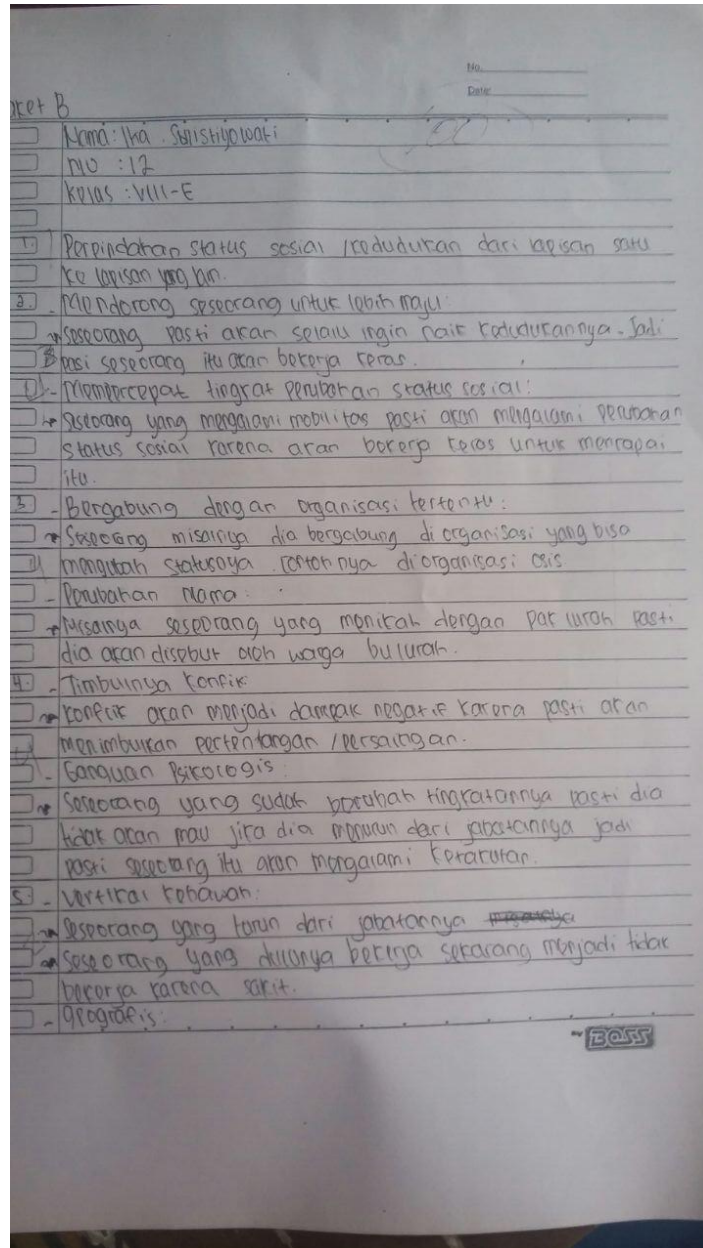 No.
Date
Paket B
Nama : Ika Sulistiyowati
no : 12
Kelas : VIII-E
1. Perpindahan status sosial /kedudukan dari lapisan satu
ke lapisan yang lain.
2. - Mendorong seseorang untuk lebih maju:
seseorang pasti akan selalu ingin naik kedudukannya. Jadi
pasi seseorang itu akan bekerja keras.
- Mempercepat tingkat perubahan status sosial:
Seseorang yang mengalami mobilitas pasti akan mengalami perubahan
status sosial karena akan bekerja keras untuk mencapai
itu.
3 - Bergabung dengan organisasi tertentu:
Seseorang misalnya dia bergabung di organisasi yang bisa
mengubah statusnya. contohnya diorganisasi osis
- Perubahan Nama:
Misalnya seseorang yang menikah dengan pak lurah pasti
dia akan disebut oleh warga bu lurah.
4. - Timbulnya konfik
konflik akan menjadi dampak negatif karena pasti akan
menimbulkan pertentangan /persaingan.
- Ganguan Psikologis:
Seseorang yang sudah berubah tingkatannya pasti dia
tidak akan mau jika dia menurun dari jabatannya jadi
pasti seseorang itu akan mengalami ketakutan.
5 - vertikal kebawah:
Seseorang yang turun dari jabatannya
seseorang yang dulunya bekerja sekarang menjadi tidak
bekerja karena sakit.
- geografis:
BOSS